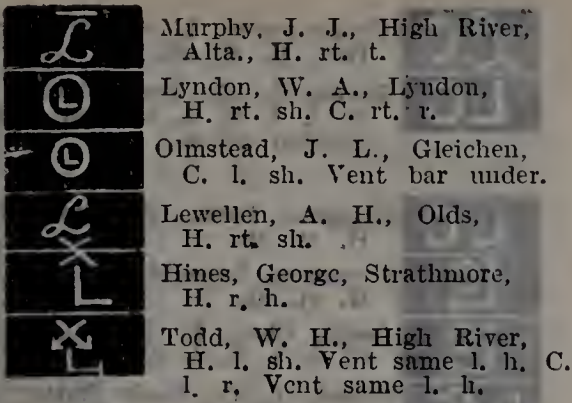 Murphy, J. J., High River,
Alta., H. rt. t.
Lyndon, W. A., Lyndon,
H. rt. sh. C. rt. r.
Olmstead, J. L., Gleichen,
C. l. sh. Vent bar under.
Lewellen, A. H., Olds,
H. rt. sh.
Hines, George, Strathmore,
H. r. h.
Todd, W. H., High River,
H. l. sh. Vent same l. h. C.
l. r. Vent same l. h.